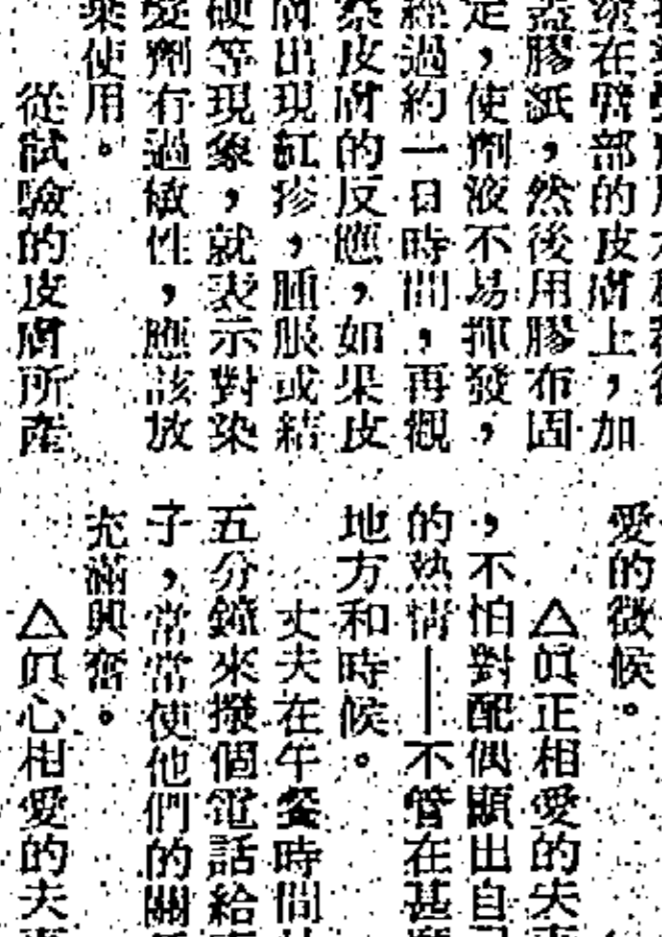 塗在臂部的皮膚上，加
蓋膠紙，然後用膠布固
定，使劑液不易揮發，
經過約一日時間，再觀
察皮膚的反應，如果皮
膚出現紅疹，腫脹或結
硬等現象，就表示對染
髮劑有過敏性，應該放
棄使用。
從試驗的皮膚所產
愛的徵候。
△眞正相愛的夫
，不怕對配偶顯出自
的熱情—不管在甚
地方和時候。
丈夫在午餐時間
五分鐘來撥個電話給
子，常常使他們的關
充滿興奮。
△眞心相愛的夫